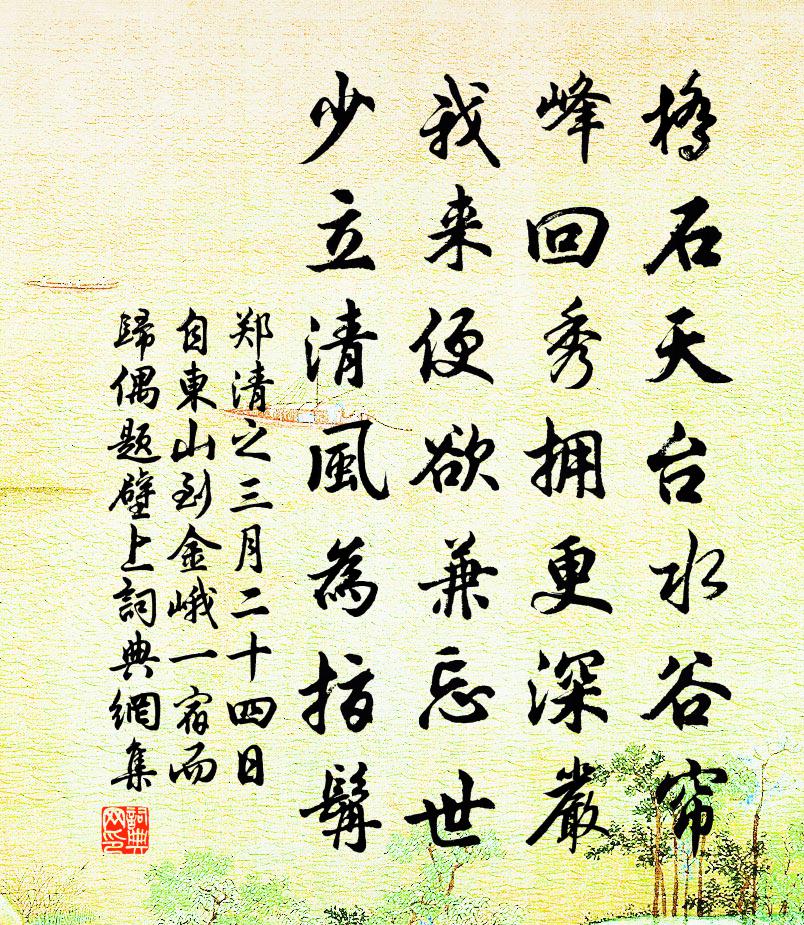 橋石天台水谷帘
峰回秀拥更深嚴
我来便欲兼忘世
少立清風為指髯
郑清之三月二十四日
自東山到金峨一宿而
歸偶题壁上詞典網集
詞典网印